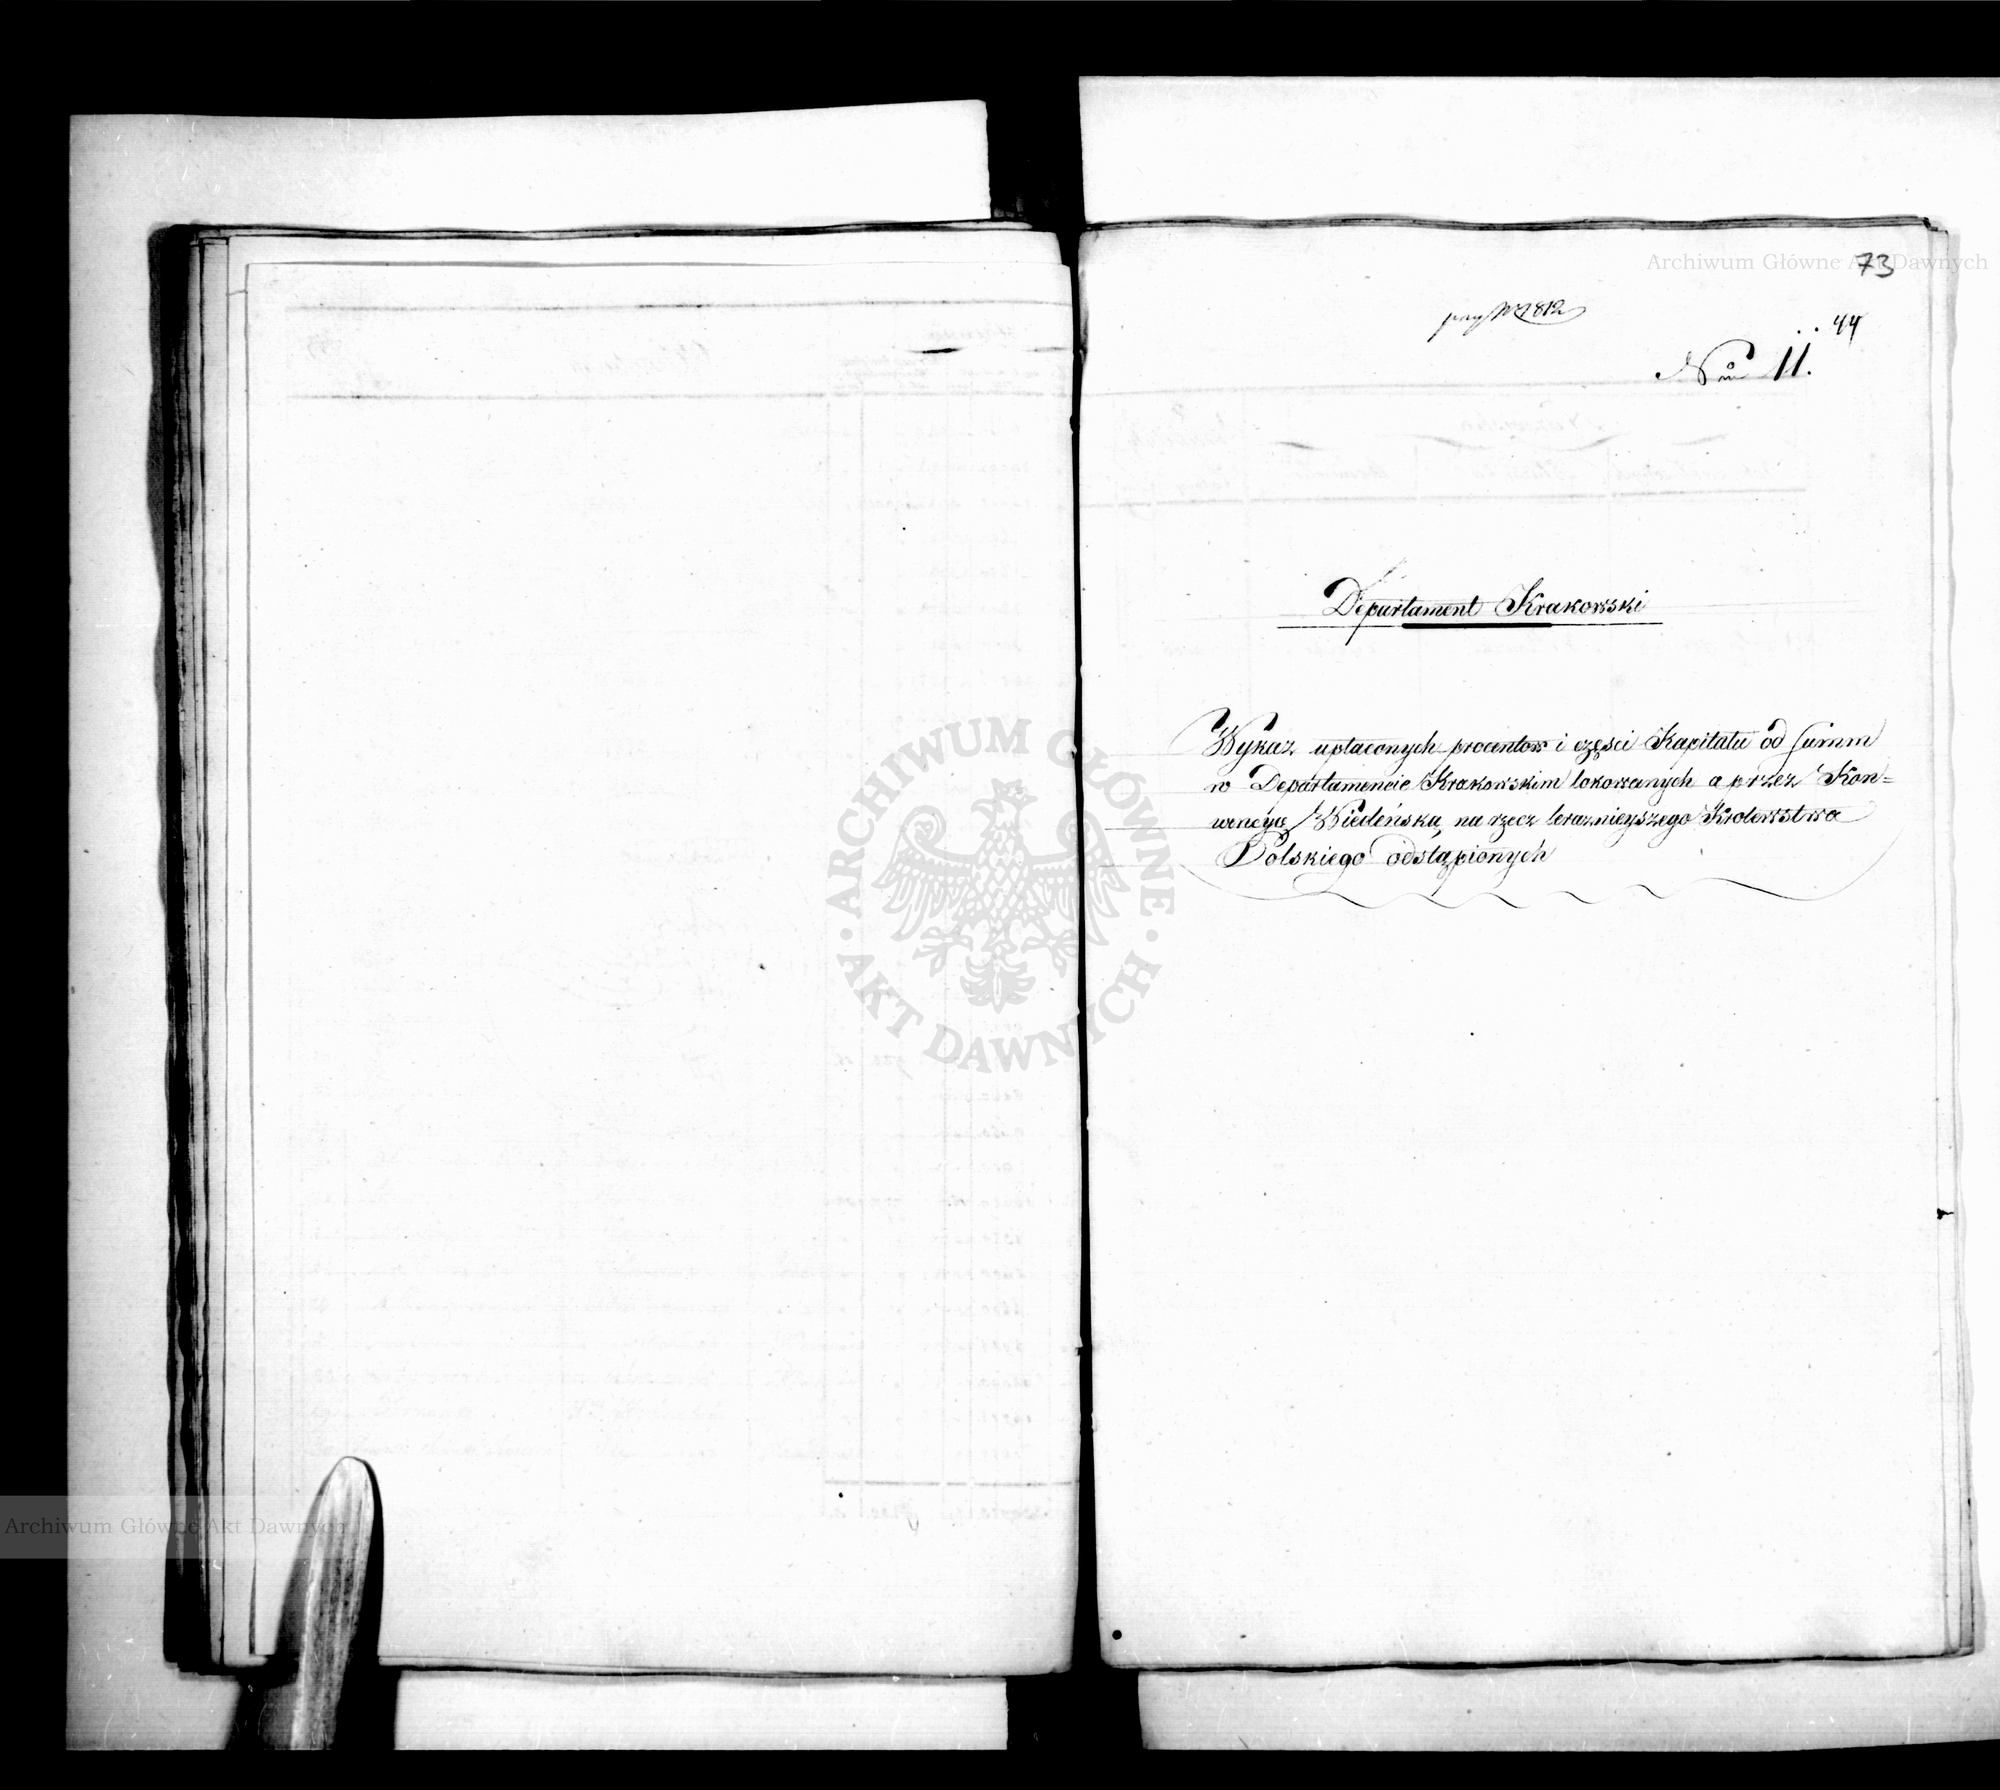 Archiwum Główne Akt Dawnych
73
przy N 1812
44
Nro 11.
Departament Krakowski
Wykaz upłaconych procentow i części Kapitału od Summ
w Departamencie Krakowskim lokowanych a przez Kon=
wencyą Wiedeńską na rzecz teraznieyszego Krolewstwa
Polskiego odstąpionych
ARCHIWUM GŁÓWNE
AKT DAWNYCH
Archiwum Główne Akt Dawnych